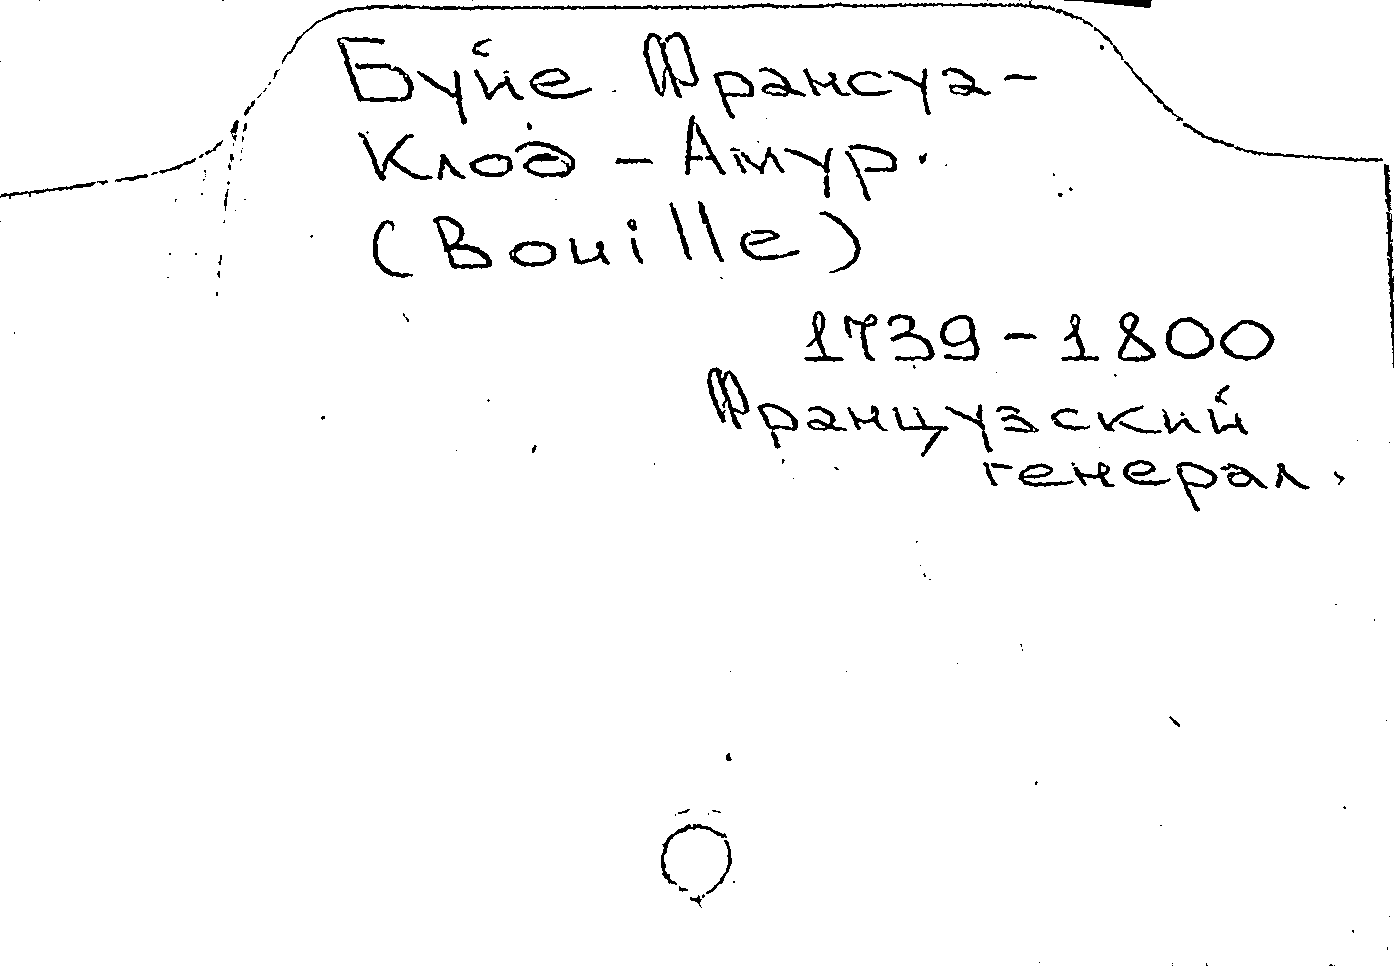 Буйе Франсуа-
Клод - Амур.
(Bouille)
1739-1800
Французский
генерал.